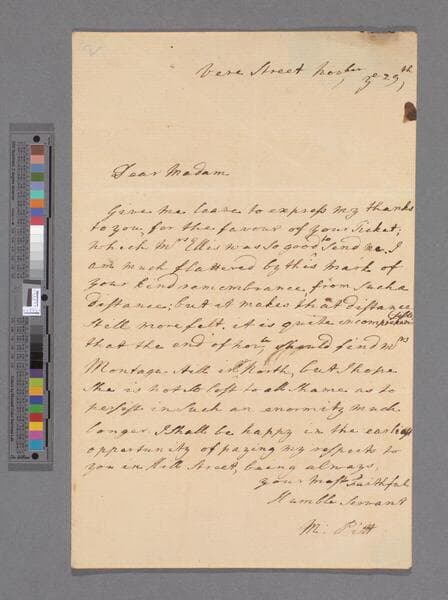 Vere Street Nov:ber ye 29th,
Dear Madam
Give me leave to express my thanks
to you, for the favour of your Ticket,
which Mrs Ellis was so good to send me. I
am much flattered by this mark of
your kind remembrance, from such a
distance; but it makes that distance
still more felt. it is quite incomprehensible
that the end of Novr, should find Mrs
Montagu still in North, but I hope
she is not so lost to all shame as to
persist in such an enormity much
longer. I shall be happy in the earliest
opportunity of paying my respects to
you in Hill Street, being always,
your most Faithful
Humble Servant
M: Pitt